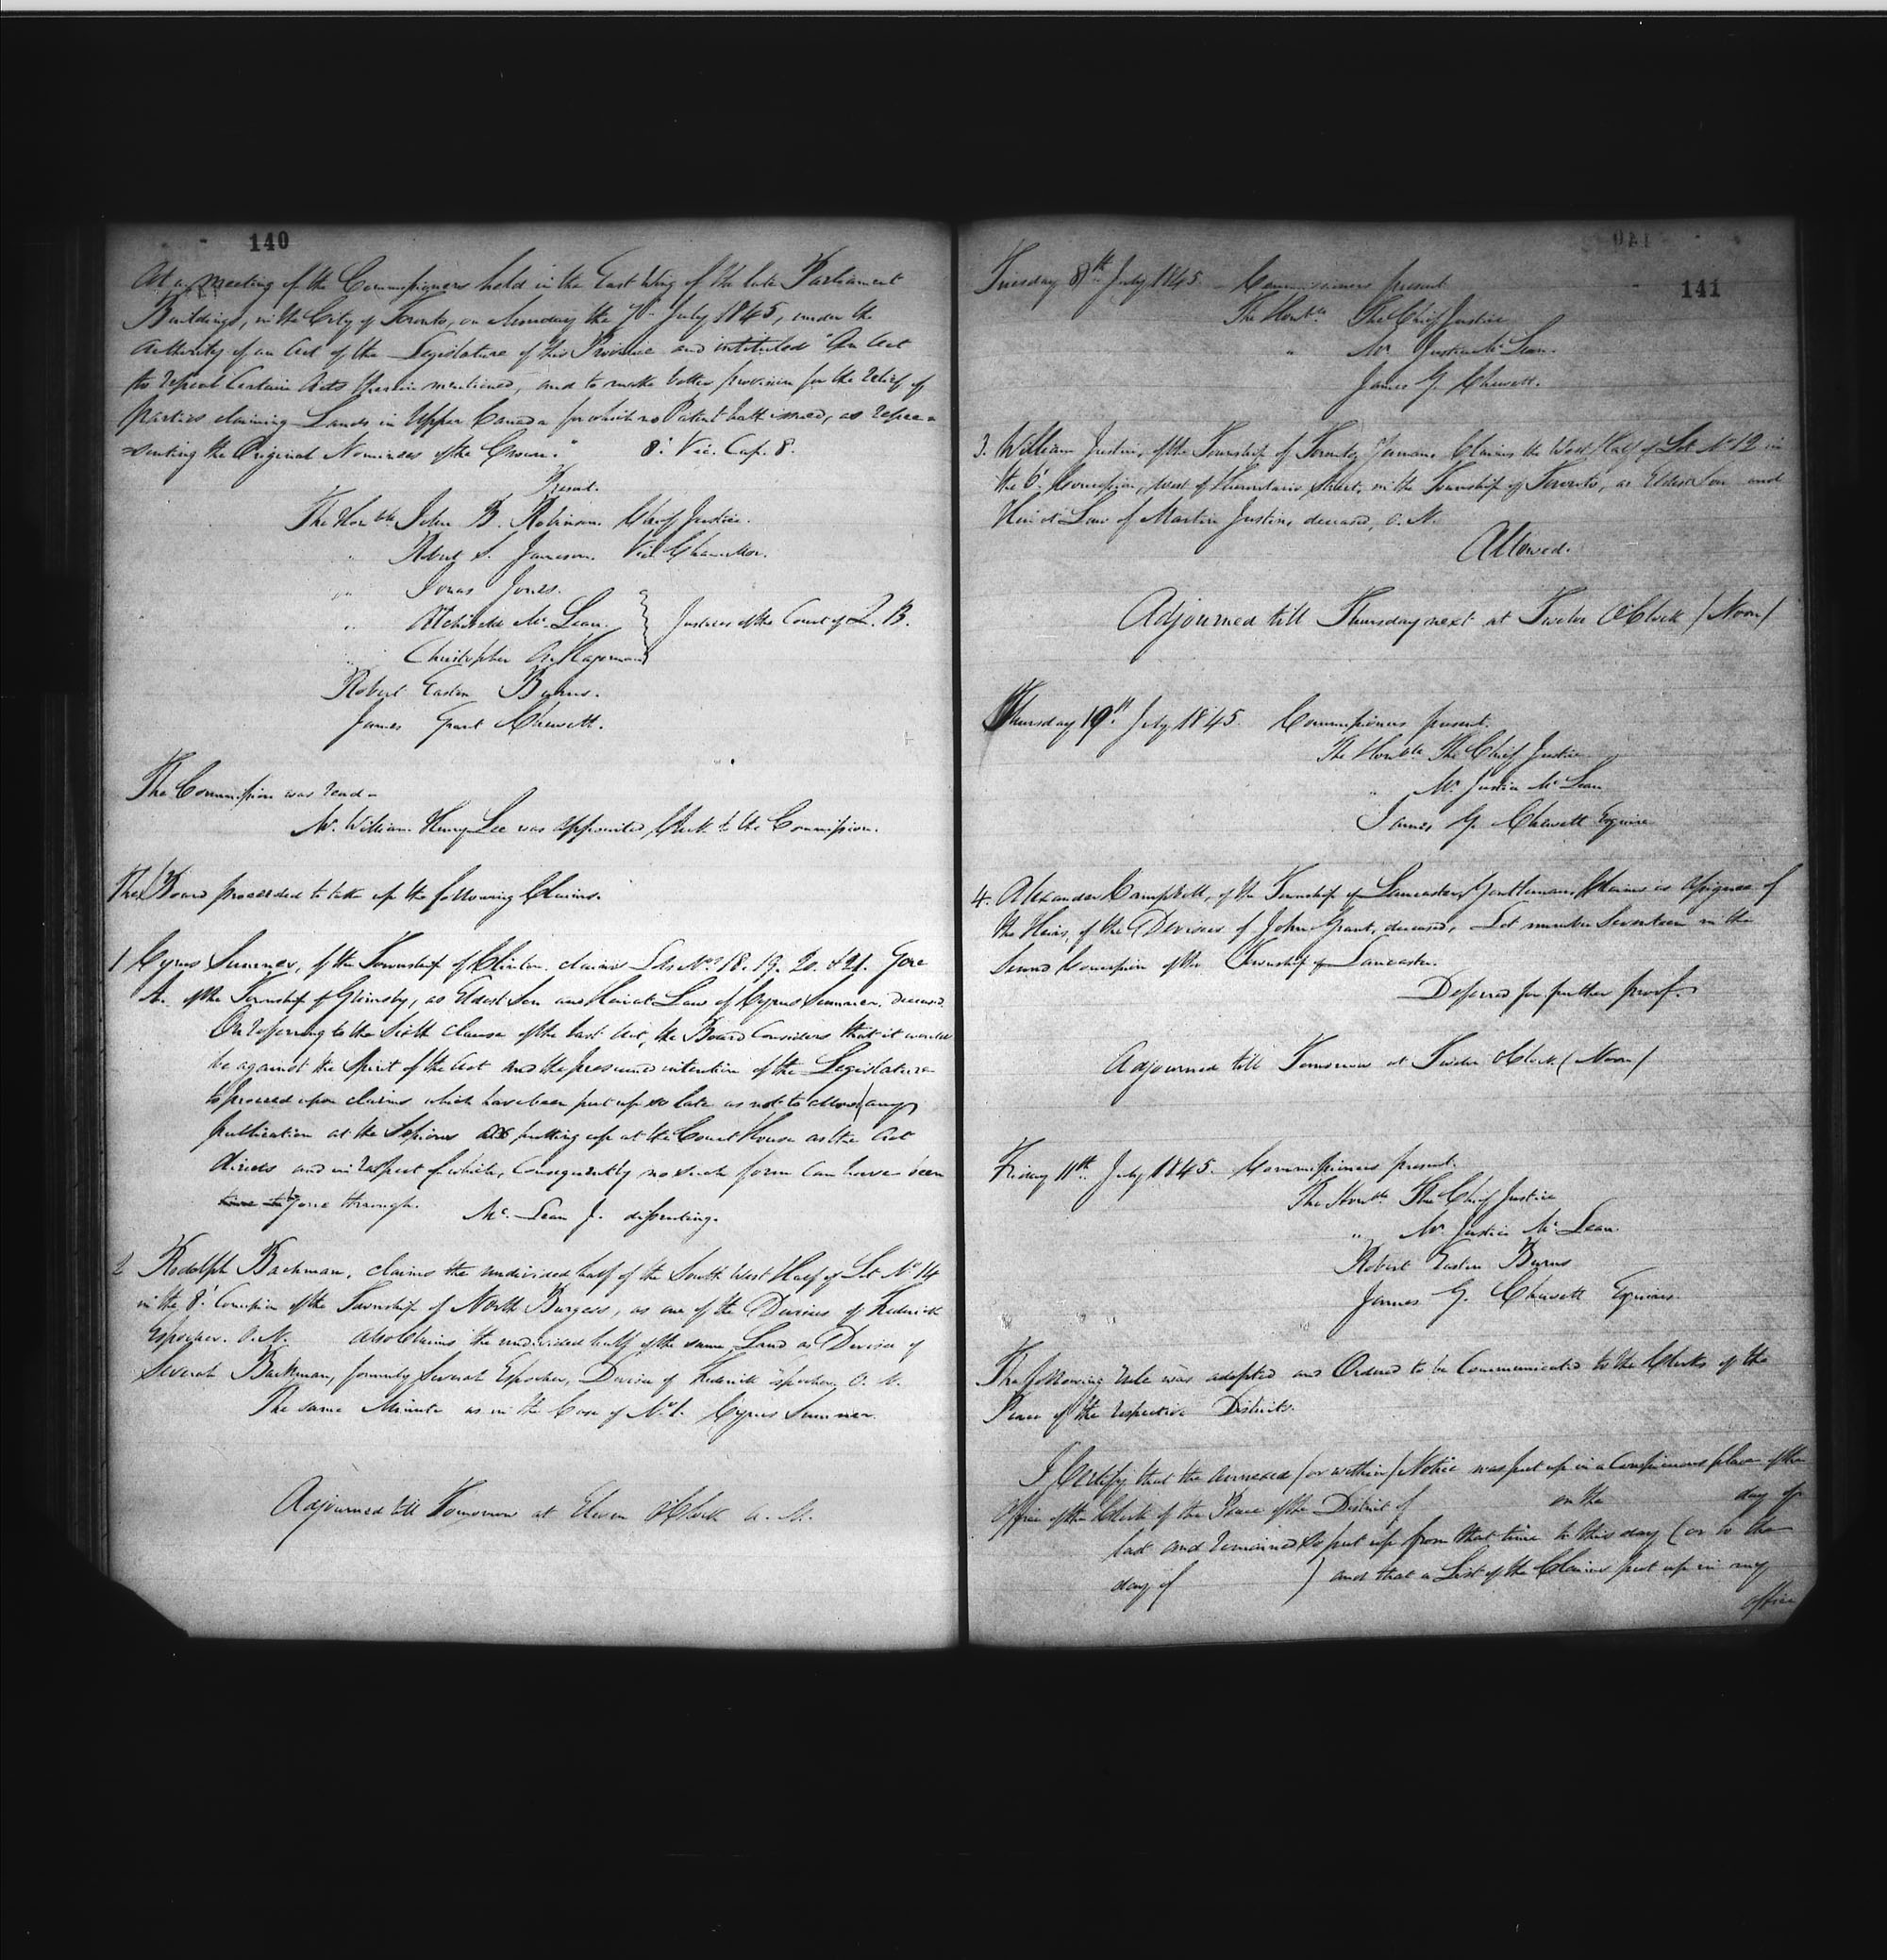 140
At a Meeting of the Commissioners held in the East Wing of the late Parliament
Buildings, in the City of Toronto, on Monday the 7th July 1845, under the
Authority of an Act of the Legislature of this Province and intituled "An Act
to repeal Certain Acts therein mentioned, and to make better provision for the relief of
parties claiming Lands in Upper Canada for which no Patent hath issued, as repre=
=senting the Original Nominees of the Crown." 8: Vic. Cap. 8.
Present.
The Honble John B. Robinson. Chief Justice.
" Robert S. Jameson. Vice Chancellor.
" Jonas Jones.
" Archibald Mc Lean. } Justices of the Court of Q. B.
" Christopher A. Hagerman
Robert Easton Burns.
James Grant Chewett.
The Commission was read -
Mr. William Henry Lee was appointed Clerk to the Commission.
The Board proceeded to take up the following Claims.
1 Cyrus Sumner, of the Township of Clinton. claims Lots Nos. 18. 19. 20. & 21. Gore
A. of the Township of Grimsby, as Eldest Son and Heir at Law of Cyrus Sumner. deceased.
On referring to the Sixth clause of the last Act, the Board Considers that it would
be against the Spirit of the Act and the presumed intention of the Legislature
to proceed upon claims which have been put up so late as not to allow any
publication at the Sessions putting up at the Court House as the Act
directs and in respect of which, Consequently no such form Can have been
gone through. Mc. Lean J. dissenting.
2 Rodolph Backman, claims the undivided half of the South West Half of Lot No 14
in the 8: Concession of the Township of North Burgess, as one of the Devisees of Frederick
Espocher. O. N. also Claims the undivided half of the same Land as Devisee of
Backman, formerly Espocher, Devisee of Frederick Espocher. O. N.
The same Minute as in the Case of No. 1. Cyrus Sumner.
Adjourned till Tomorrow at Eleven OClock A. M.
141
Tuesday 8th July 1845. Commissioners present
The Honble The Chief Justice
" Mr Justice Mc Lean.
James G. Chewett.
3. William Justin, of the Township of Toronto, Yeoman, Claims the West Half of Lot No 12 in
the 6: Concession, West of Hurontario Street, in the Township of Toronto, as Eldest Son and
Heir at Law of Martin Justin, deceased, O. N.
Allowed.
Adjourned till Thursday next at Twelve OClock / Noon /
Thursday 10th July 1845. Commissioners present.
The Honble The Chief Justice
" Mr Justice Mc Lean
James G. Chewett Esquire
4. Alexander Campbell, of the Township of Lancaster, Gentleman, Claims as Assignee of
the Heirs, of the Devisees of John Grant, deceased, Lot number Seventeen in the
Second Concession of the Township of Lancaster.
Deferred for further proof.
Adjourned till Tomorrow at Twelve OClock ( Noon /
Friday 11th July 1845. Commissioners present.
The Honble The Chief Justice
" Mr Justice Mc Lean.
Robert Easton Burns
James G. Chewett Esquires.
The following rule was adopted and Ordered to be Communicated to the Clerks of the
Peace of the respective Districts.
I Certify that the annexed / or within / Notice was put up in a Conspicuous place of the
Office of the Clerk of the Peace of the District of on the day of
last and remained so put up from that time to this day ( or to the
day of ) and that a List of the Claims put up in my
Office